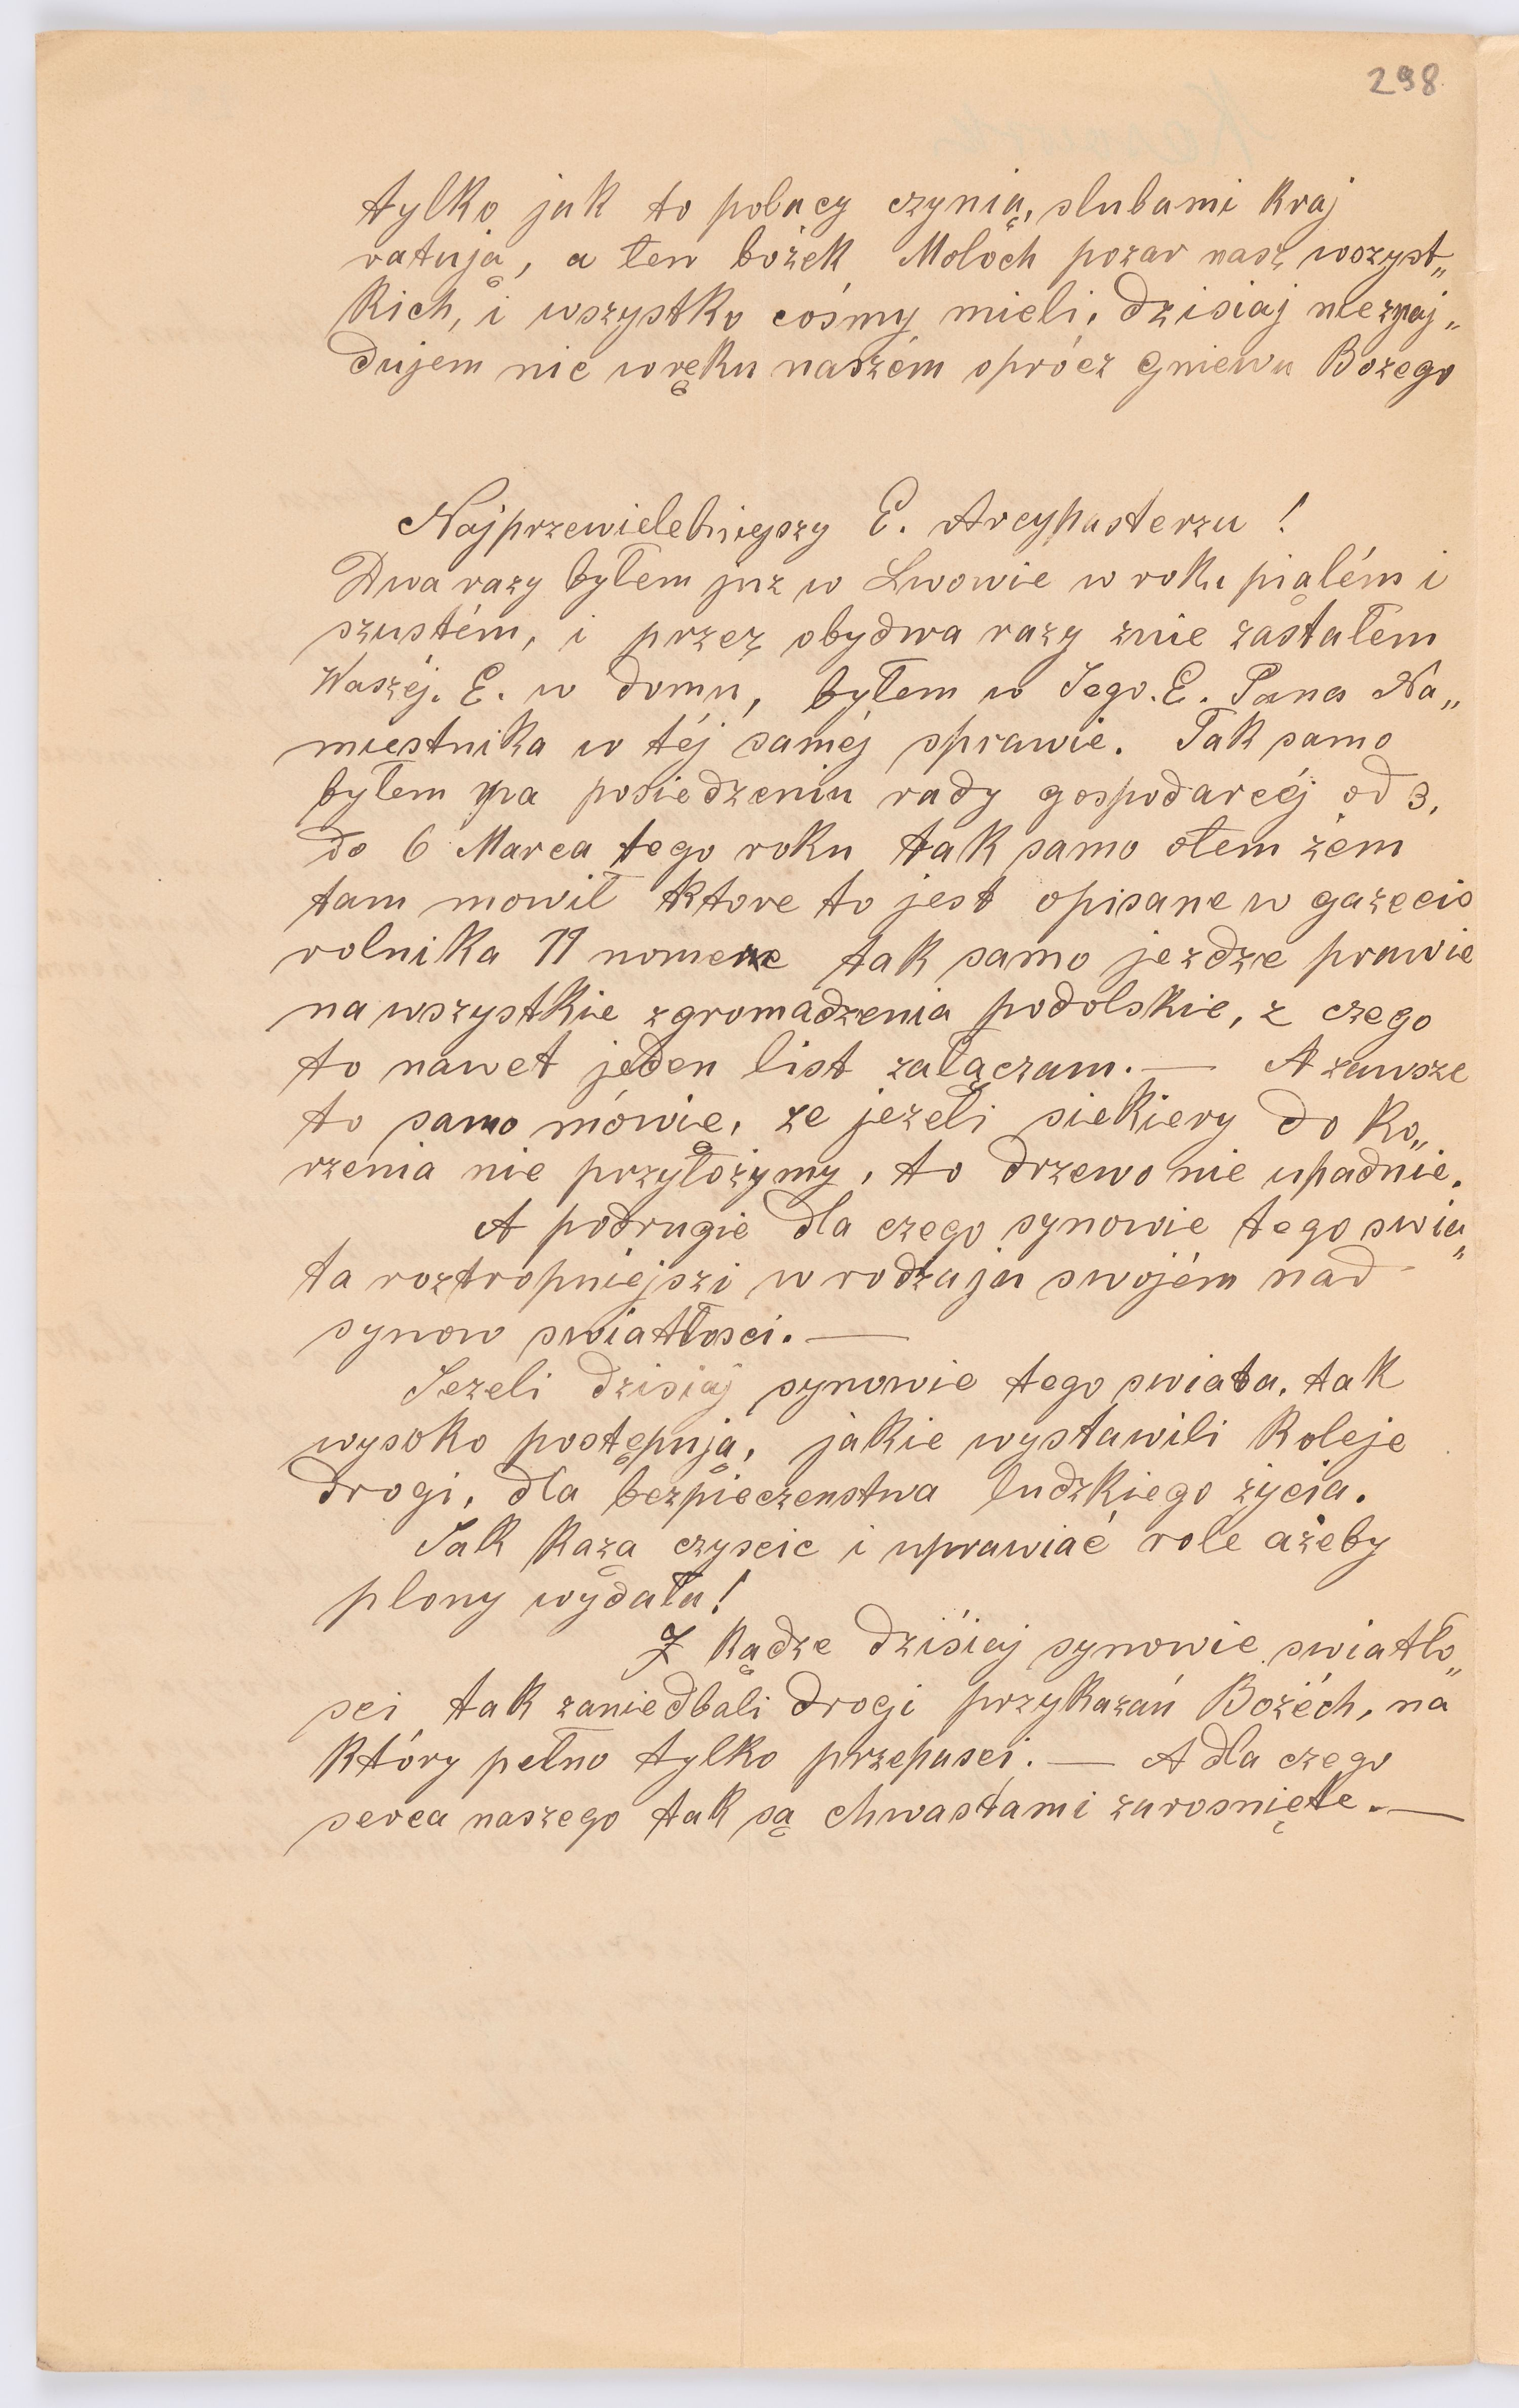 298
tylko jak to polacy czynią, slubami kraj
ratują, a ten bożek Moloch pozar nasz wszyst„
kich, i wszystko cośmy mieli, dzisiaj nieznaj„
dujem nic wręku naszém oprócz Gniewu Bozego
Najprzewielebniejszy E. Arcypasterzu!
Dwa razy byłem juz w Lwowie w roku piątém i
szustém, i przez obydwa razy znie zastałem
Waszéj. E. w domu, byłem w Jego. E. Pana Na„
miestnika w téj saméj sprawie. Tak samo
byłem na posiedzeniu rady gospodarcéj od 3.
do 6 Marca tego roku tak samo otem żem
tam mowił ktore to jest opisane w gazecie
rolnika 11 nomerze tak samo jezdze prawie
na wszystkie zgromadzenia podolskie, z czego
to nawet jeden list załączam. — A zawsze
to samo mówię, ze jezeli siekiery do ko„
rzenia nie przyłożymy, to drzewo nie upadnie.
A podrugie dla czego synowie tego swia„
ta roztropniejszi w rodzaju swojém nad
synow swiatłosci. —
Jezeli dzisiaj synowie tego swiata, tak
wysoko postępują, jakie wystawili koleje
drogi, dla bezpieczenstwa ludzkiego życia.
Jak każą czyscic i uprawiać role ażeby
plony wydała!
Z kądze dzisiaj synowie swiatło„
sci tak zaniedbali drogi przykazań Bożéch, na
który pełno tylko przepasci. — A dla czego
serca naszego tak są chwastami zarosnięte. —